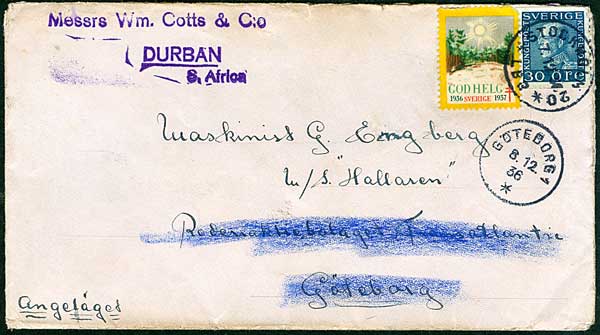 Messrs Wm. Cotts & Co
DURBAN
S. Africa
GOD HELG
1936 SVERIGE 1937
SVERIGE
KUNGL. POST
30 ÖRE
GÖTEBORG 1
8.12.
36
Maskinist G. Engberg
M/S. "Hallaren"
Rederiaktiebolaget Transatlantic
Göteborg
Angeläget